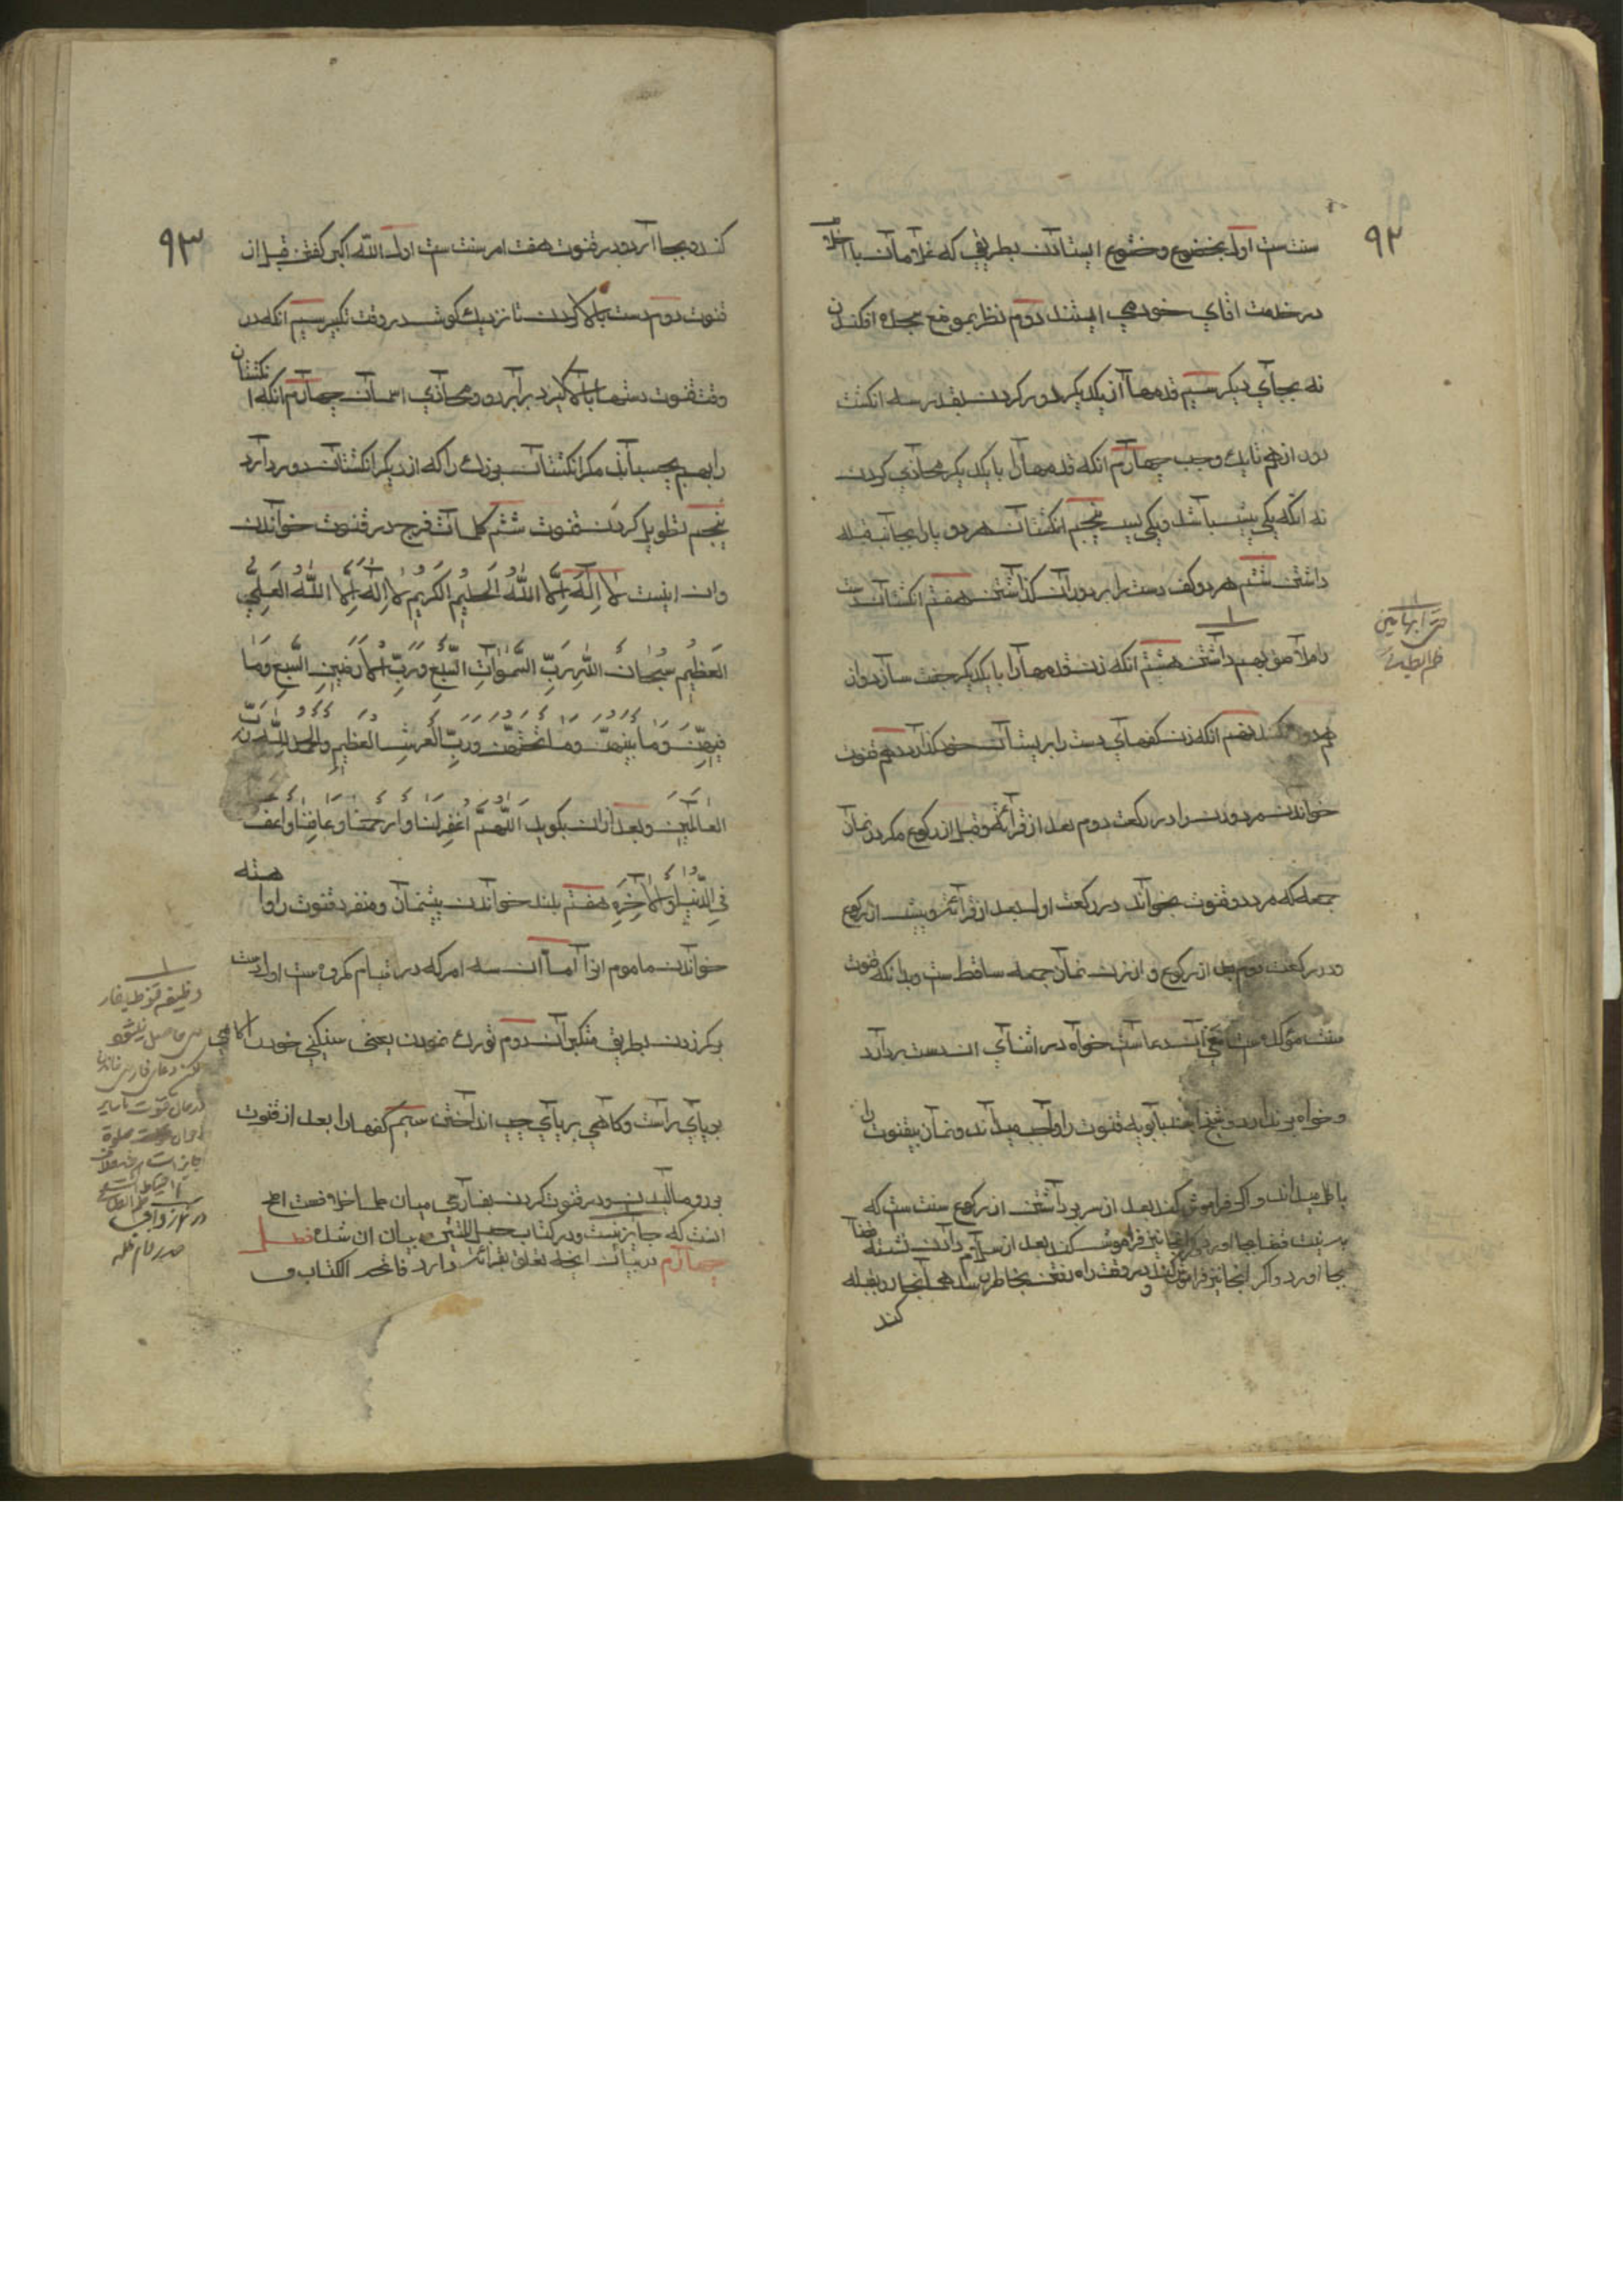 ۹۲
سنت ست اول بخضوع و خشوع ایستادن بطریقی که غلامان با اخلاص
در خدمت اقای خود می ایستند دوم نظر بموضع سجده افکندن
نه بجای دیکر سیم قدمها از یکدیکر دور کردن بقدر سه انکشت
دور از هم تا یک وجب چهارم انکه قدمها را با یکدیکر محاذی کردن
نه انکه یکی پیش باشد و یکی پس پنجم انکشتان هر دو پا را بجانب قبله
داشتن ششم هر دو کف دست را بر دو ران گذاشتن هفتم انکشتان دست
را ملاصق بهم داشتن هشتم انکه زن قدمها را با یکدیکر جفت سازد و از
هم دور نکند نهم انکه زن کفهای دست را بر پستان خود گذارد دهم قنوت
خواندن مرد و زن را در رکعت دوم بعد از قرائة و قبل از رکوع مکر در نماز
جمعه که مرد دو قنوت بخواند در رکعت اول بعد از قرائة و پیش از رکوع
و در رکعت دوم بعد از رکوع و از زن نماز جمعه ساقط ست و بدانکه قنوت
سنت مؤکد ست و معنی آن دعاست خواه در اثنای ان دست بردارد
و خواه برندارد و شیخ ابن بابویه قنوت را واجب میداند و نماز بیقنوت را
باطل میداند و اگر فراموش کند بعد از سر برداشتن از رکوع سنت ست که
به نیت قضا بجا اورد و اگر انجا نیز فراموش کند بعد از سلام دادن نشسته قضا
بجا اورد و اگر انجا نیز فراموش کند و در وقت راه رفتن بخاطر رسد همانجا رو بقبله
کند
حتی ابهامین
۹۳
کند و بجا آرد و در قنوت هفت امر سنت ست اول الله اکبر کفتن قبل از
قنوت دوم دست بالا بردن تا نزدیک کوش در وقت تکبیر سیم انکه در
وقت قنوت دستها بالا گیرد برابر رو و محاذی اسمان چهارم انکه انکشتان
را بهم بچسباند مکر انکشتان بزرک را که از دیکر انکشتان دور دارد
پنجم تطویل کردن قنوت ششم کلمات فرج در قنوت خواندن
و ان اینست لا اِلٰهَ اِلَّا اللّٰهُ الحَلیمُ الکَریمُ لا اِلٰهَ اِلَّا اللّٰهُ العَلِیُّ
العَظیمُ سُبحانَ اللّٰهِ رَبِّ السَّمٰواتِ السَّبعِ وَرَبِّ الاَرَضینِ السَّبعِ وَمَا
فیهِنَّ وَمَا بَینَهُنَّ وَمَا تَحتَهُنَّ وَرَبِّ العَرشِ العَظیمِ وَالحَمدُ لِلّٰهِ رَبِّ
العالَمینَ و بعد ازان بکوید اَللّٰهُمَّ اغفِر لَنا وَارحَمنا وَعافِنا وَاعفُ
فِی الدُّنیا وَالآخِرَةِ هفتم بلند خواندن پیشنماز و منفرد قنوت را و اهسته
خواندن ماموم انرا اما ان سه امر که در قیام مکروه ست اول دست
بر کمر زدن بطریق متکبران دوم تورک نمودن یعنی سنکینی خود را کاهی
بر پای راست و کاهی بر پای چپ انداختن سیم کفها را بعد از قنوت
برو مالیدن و در قنوت کردن بفارسی میان علما خلافست اصح
انست که جایز نیست و در کتاب حبل المتین بیان ان شده فصل
چهارم در بیان انچه تعلق بقرائة دارد فاتحه الکتاب و